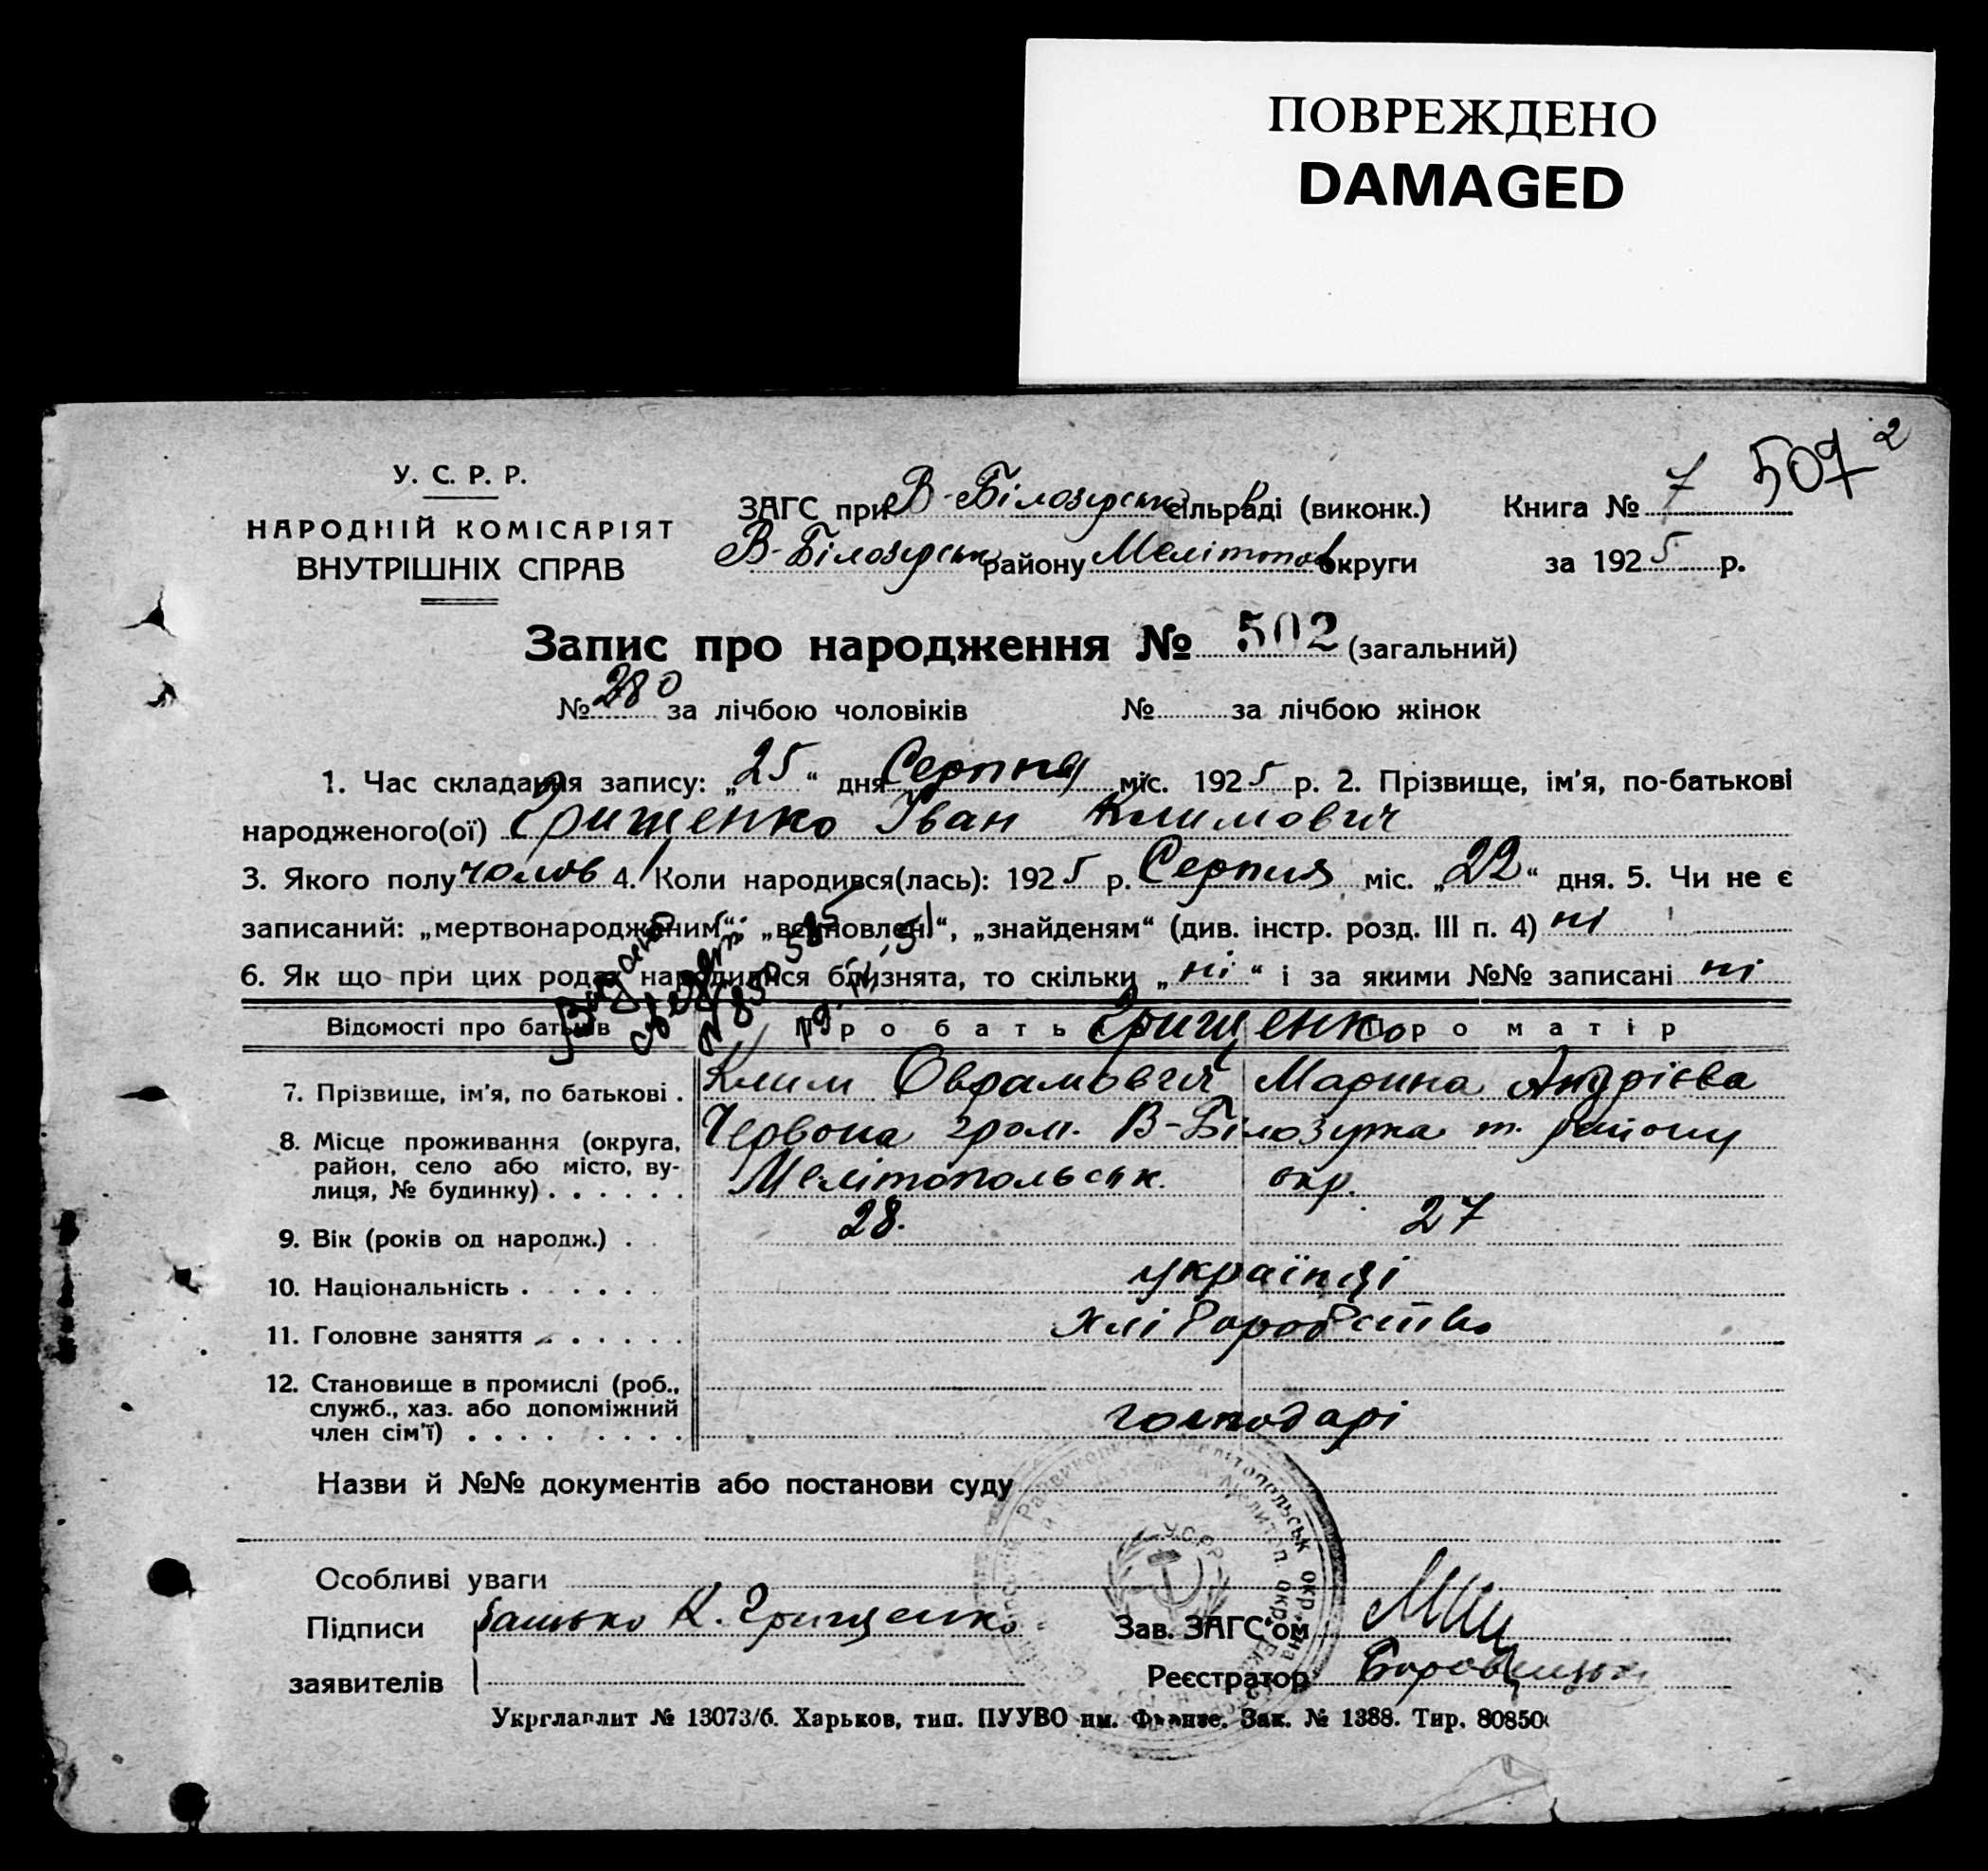 ПОВРЕЖДЕНО
DAMAGED
507 2
У. С. Р. Р.
НАРОДНІЙ КОМІСАРІЯТ
ВНУТРІШНІХ СПРАВ
ЗАГС при В-Білозерськ сільраді (виконк.) Книга № 7
В-Білозерськ району Мелітопов округи за 1925 р.
Запис про народження № 502 (загальний)
№ 280 за лічбою чоловіків № за лічбою жінок
1. Час складання запису: „25“ дня Серпня міс. 1925 р. 2. Прізвище, ім’я, по-батькові
народженого(ої) Грищенко Іван Климович
3. Якого полу чолов 4. Коли народився(лась): 1925 р. Серпня міс. „22“ дня. 5. Чи не є
записаний: „мертвонародженим“, „встановлен.“, „знайденям“ (див. інстр. розд. III п. 4) ні
6. Як що при цих родах народилися близнята, то скільки „ні“ і за якими №№ записані ні
Відомості про батьків Про батька Грищенко Про матір
7. Прізвище, ім’я, по батькові . Клим Оврамович Марина Андрієва
8. Місце проживання (округа, Червона гром. В-Білозерка т. району
район, село або місто, ву-
лиця, № будинку) . . . . . . Мелітопольськ. окр.
9. Вік (років од народж.) . . 28. 27
10. Національність . . . . . . українці
11. Головне заняття . . . . . . хліборобство
12. Становище в промислі (роб.,
служб., хаз. або допоміжний
член сім’ї) . . . . . . . . господарі
Назви й №№ документів або постанови суду
Особливі уваги
Підписи батько К. Грищенко Зав. ЗАГС’ом
заявителів Реєстратор
Укрглавлит № 13073/6. Харьков, тип. ПУУВО им. Фрунзе. Зак. № 1388. Тир. 80850
У.С.Р.Р.